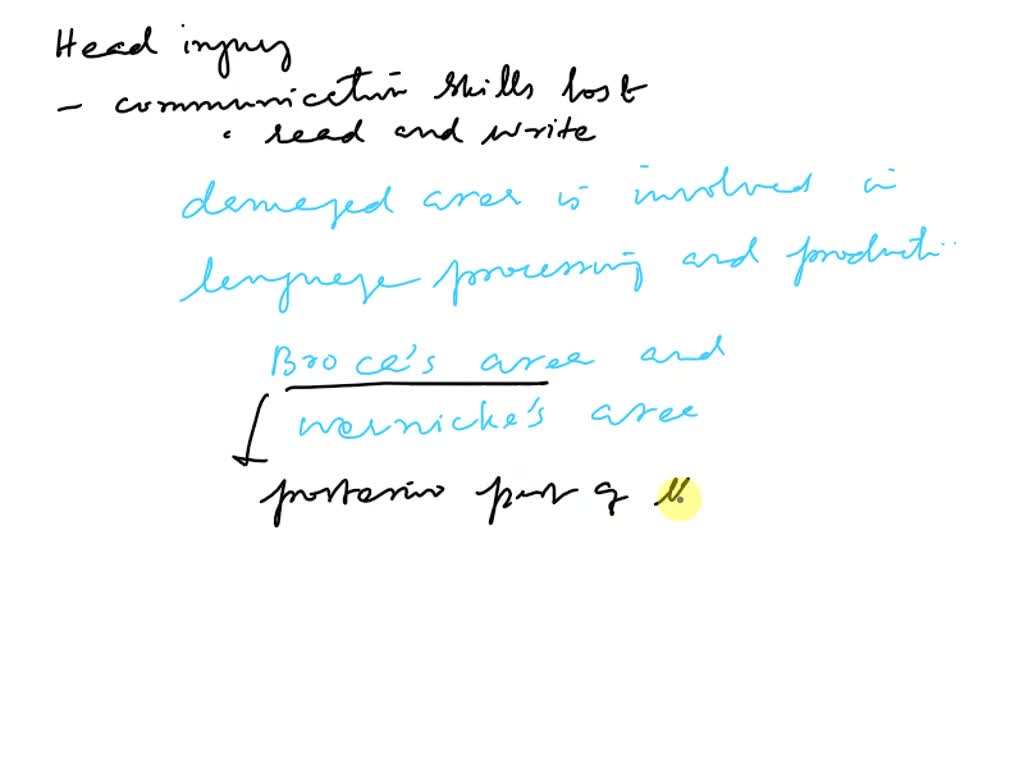 Head injury
- communication skills lost
• read and write
damaged area is involved in
language processing and producti
Broca's area and
wernicke's area
posterior part of